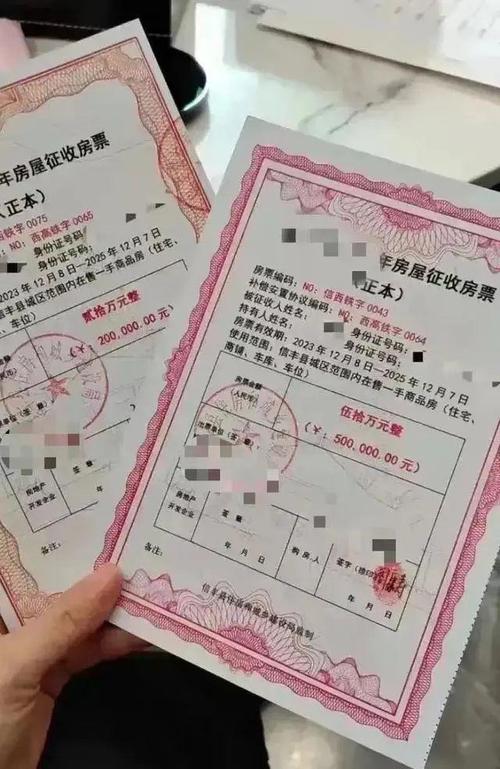 年房屋征收房票
（正本）
铁字 0075
：NO：西高铁字 0065
身份证号码
身份证号码：
2023 年 12 月 8 日－2025 年 12 月 7 日
信丰县城区范围内在售一手商品房（住宅、
、车位）
贰拾万元整
（￥：200,000.00 元）
签章
房地产
开发企业
年
备注：
年房屋征收房票
（正本）
房票编码：NO：信西铁字 0043
补偿安置协议编码：NO：西高铁字 0064
被征收人姓名：
身份证号码：
持有人姓名：
身份证号码：
房票有效期：2023 年 12 月 8 日－2025 年 12 月 7 日
使用范围：信丰县城区范围内在售一手商品房（住宅、
商铺、车库、车位）
房票金额
（人民币）
伍拾万元整
（￥：500,000.00 元）
出票单位（签章）
房地产
开发企业
签章
年 月 日
购房人
签字（捺印）
年 月 日
备注：